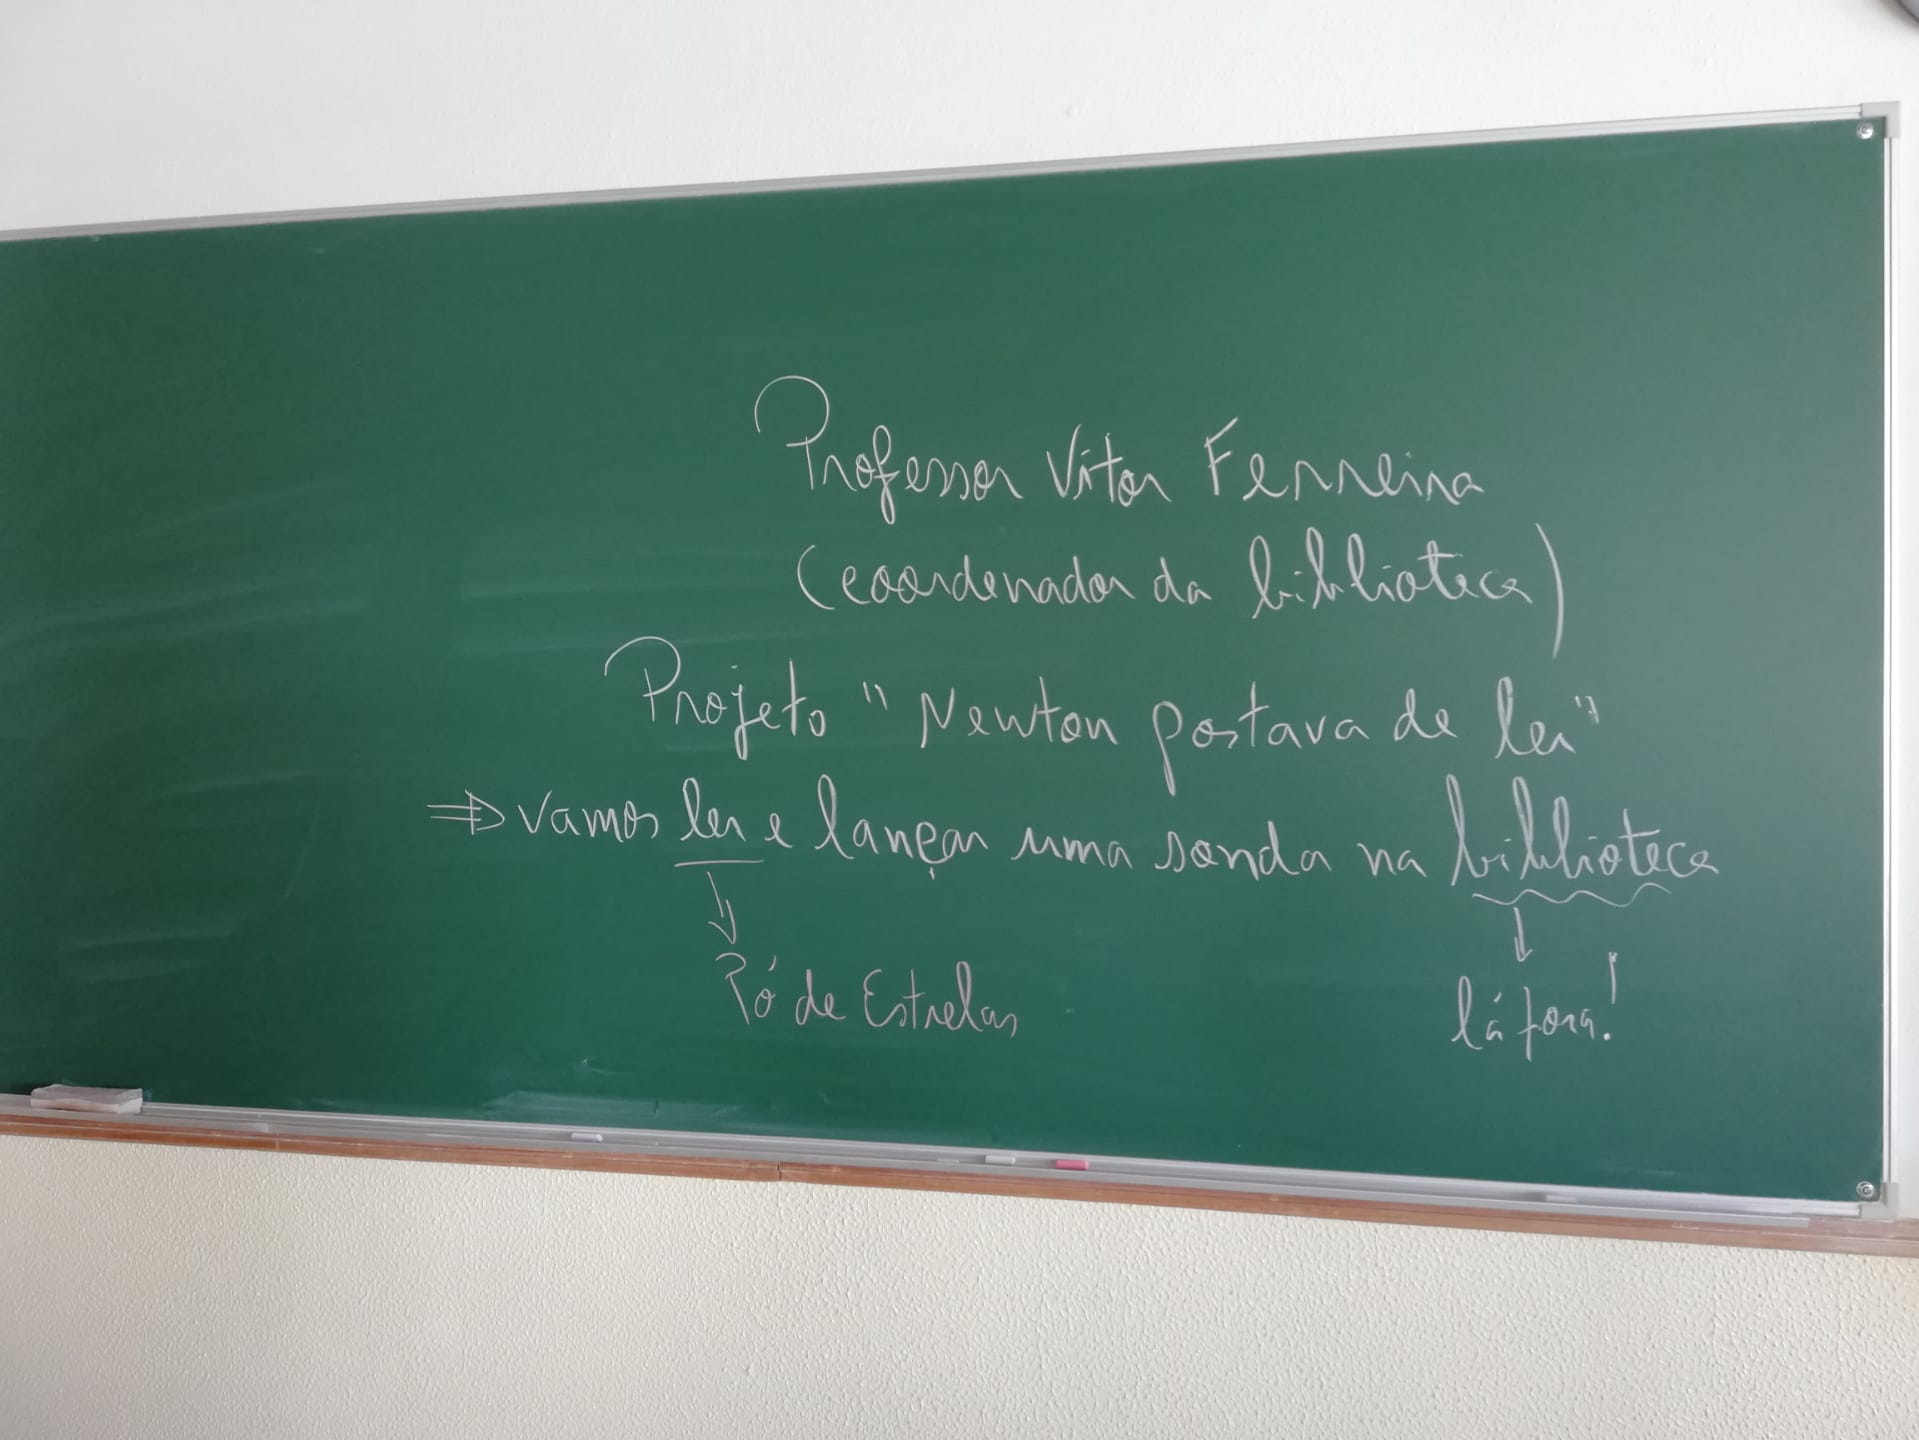 Professor Vítor Ferreira
(coordenador da biblioteca)
Projeto "Newton gostava de ler"
⇒ vamos ler e lançar uma sonda na biblioteca
↓ ↓
Pó de Estrelas lá fora!